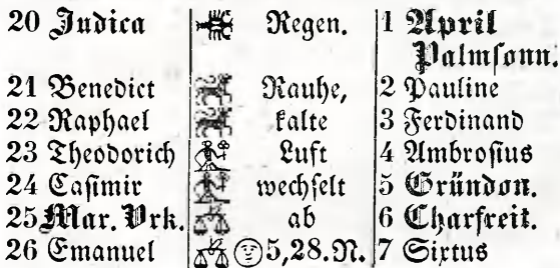 20 Judica Regen. 1 April
Palmsonn.
21 Benedict Rauhe, 2 Pauline
22 Raphael kalte 3 Ferdinand
23 Theodorich Luft 4 Ambrosius
24 Casimir wechselt 5 Gründon.
25 Mar. Vrk. ab 6 Charfreit.
26 Emanuel 5,28.N. 7 Sixtus